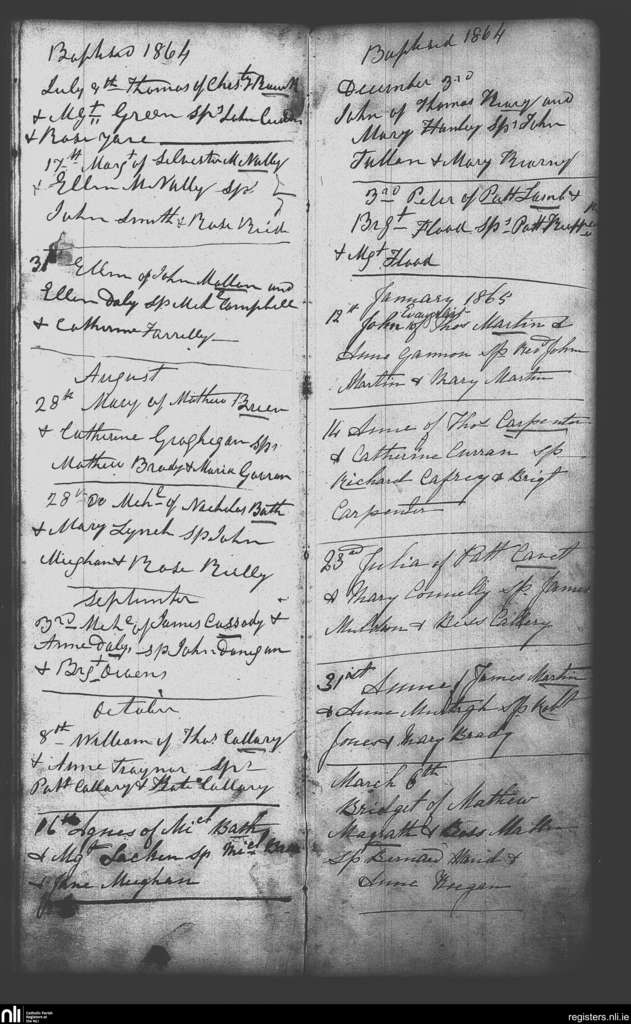 Baptised 1864
July 8th Thomas of
& Mgt Green sps John
& Rose
17th Margt of Silvester McNully
& Ellen McNally sps
John Smith & Rose Reid
31 Ellen of John Mallon and
Ellen Daly sps Mchl Campbell
& Catherine Farrelly
August
28th Mary of Mathew Breen
& Catherine Geoghegan sps
Mathew Brady & Maria
28th Do Mchl of Nicholas Bath
& Mary Lynch sps John
Meighan & Rose Reilly
September
3rd Mchl of James Cassody &
Anne Daly sps John Donegan
& Brgt Owens
October
8th William of Thos Callary
& Anne Traynor sps
Patt Callary & Kate Callary
16th Agnes of Micl Bath
& Mgt sp Micl
& Jane Meighan
Baptised 1864
December 3rd
John of Thomas and
Mary Hanley sps John
Fullam & Mary
3rd Peter of Patt Lamb &
Brgt Flood sps Patt
& Mgt Flood
January 1865
12th John Evangelist of Thos Martin &
Anne Gannon sp Revd John
Martin & Mary Martin
14 Anne of Thos Carpenter
& Catherine Curran sp
Richard Cafrey & Brigt
Carpenter
23rd Julia of Patt
& Mary Connelly sp James
Muldoon & Bess Callery
31st Anne of James Martin
& Anne sp Robt
Jones & Mary Brady
March 6th
Bridget of Mathew
Magrath & Bess
sp Bernard &
Anne Horgan
nli
Catholic Parish
Registers at
the NLI
registers.nli.ie